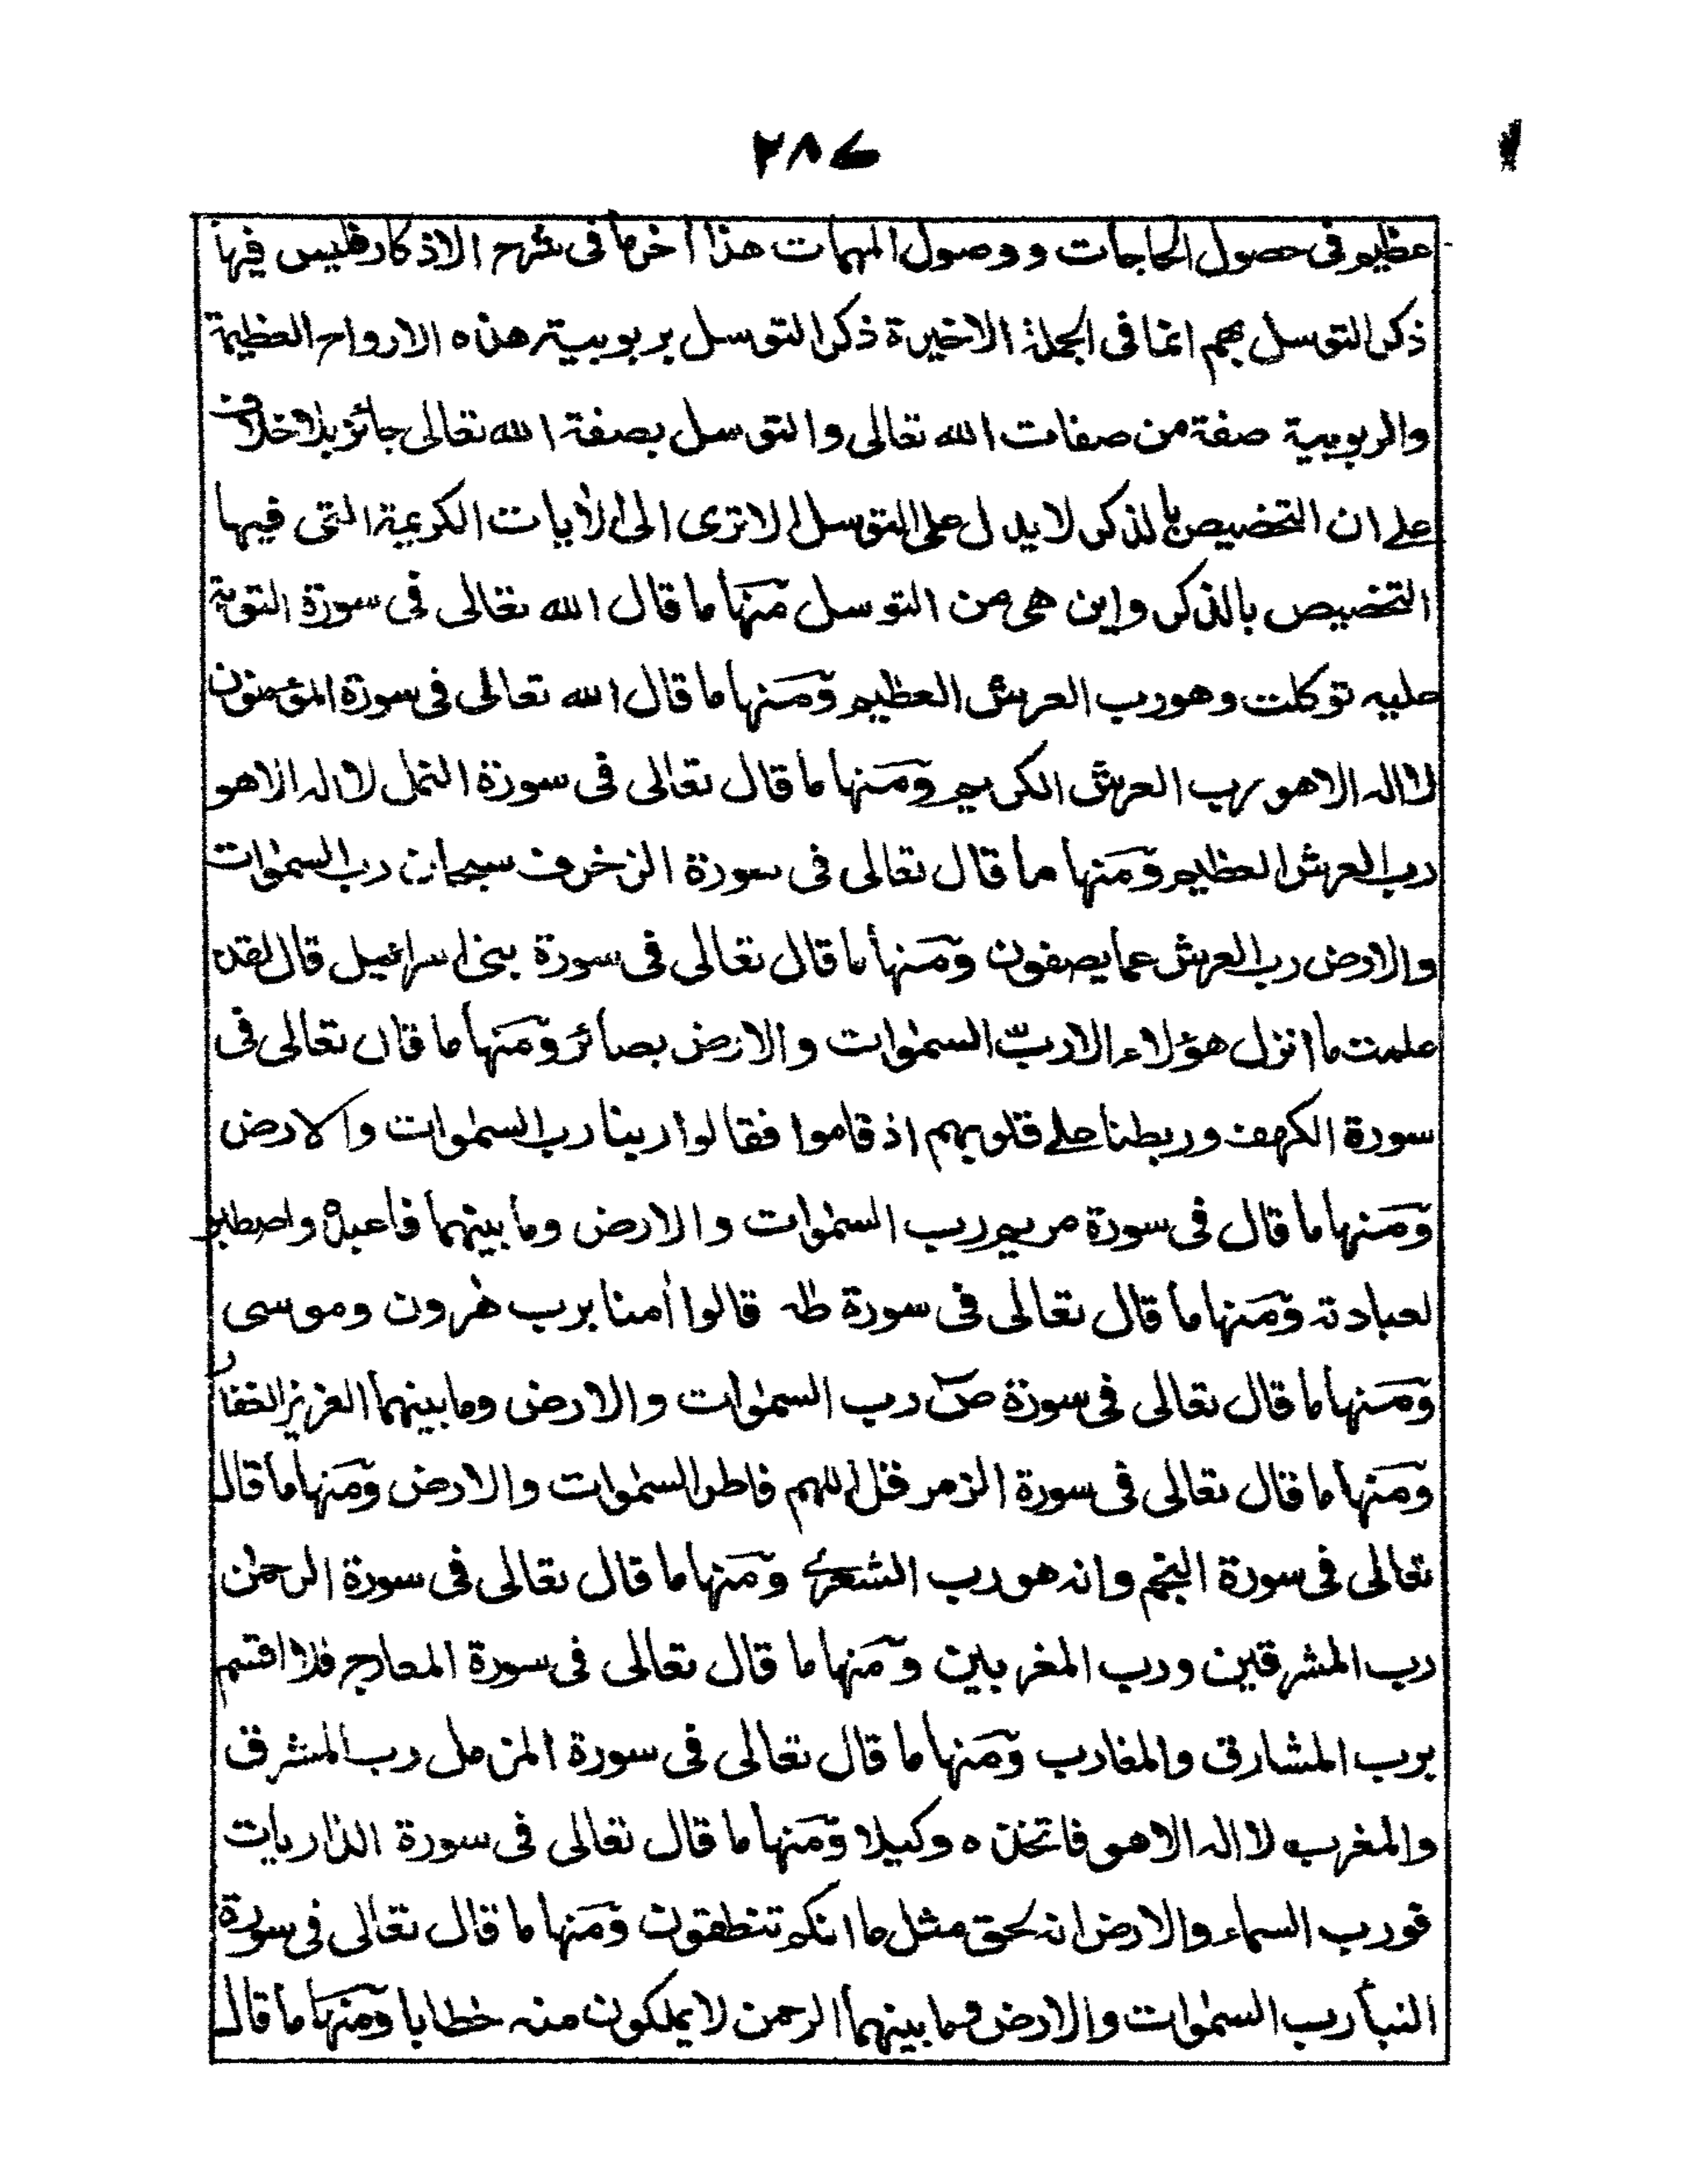 ٢٨٧
عظيم فى حصول الحاجات ووصول المهمات هذا اخر ما فى شرح الاذكار فليس فيها
ذكر التوسل بهم انما فى الجملة الاخيرة ذكر التوسل بربوبية هذه الارواح العظيمة
والربوبية صفة من صفات الله تعالى والتوسل بصفة الله تعالى جائز بلا خلاف
على ان التخصيص بالذكر لا يدل على التوسل الا ترى الى الأيات الكريمة التى فيها
التخصيص بالذكر واين هى من التوسل منها ما قال الله تعالى فى سورة التوبة
عليه توكلت وهو رب العرش العظيم ومنها ما قال الله تعالى فى سورة المؤمنون
لا اله الا هو رب العرش الكريم ومنها ما قال تعالى فى سورة النمل لا اله الا هو
رب العرش العظيم ومنها ما قال تعالى فى سورة الزخرف سبحان رب السمٰوات
والارض رب العرش عما يصفون ومنها ما قال تعالى فى سورة بنى اسرائيل قال لقد
علمت ما انزل هؤلاء الا ربّ السمٰوات والارض بصائر ومنها ما قال تعالى فى
سورة الكهف وربطنا على قلوبهم اذ قاموا فقالوا ربنا رب السمٰوات والارض
ومنها ما قال فى سورة مريم رب السمٰوات والارض وما بينهما فاعبده واصطبر
لعبادته ومنها ما قال تعالى فى سورة طٰه قالوا أمنا برب هٰرون وموسى
ومنها ما قال تعالى فى سورة صٓ رب السمٰوات والارض وما بينهما العزيز الغفار
ومنها ما قال تعالى فى سورة الزمر قل اللهم فاطر السمٰوات والارض ومنها ما قال
تعالى فى سورة النجم وانه هو رب الشعرى ومنها ما قال تعالى فى سورة الرحمٰن
رب المشرقين ورب المغربين ومنها ما قال تعالى فى سورة المعارج فلا اقسم
برب المشارق والمغارب ومنها ما قال تعالى فى سورة المزمل رب المشرق
والمغرب لا اله الا هو فاتخذه وكيلا ومنها ما قال تعالى فى سورة الذاريات
فورب السماء والارض انه لحق مثل ما انكم تنطقون ومنها ما قال تعالى فى سورة
النبأ رب السمٰوات والارض وما بينهما الرحمن لا يملكون منه خطابا ومنها ما قال